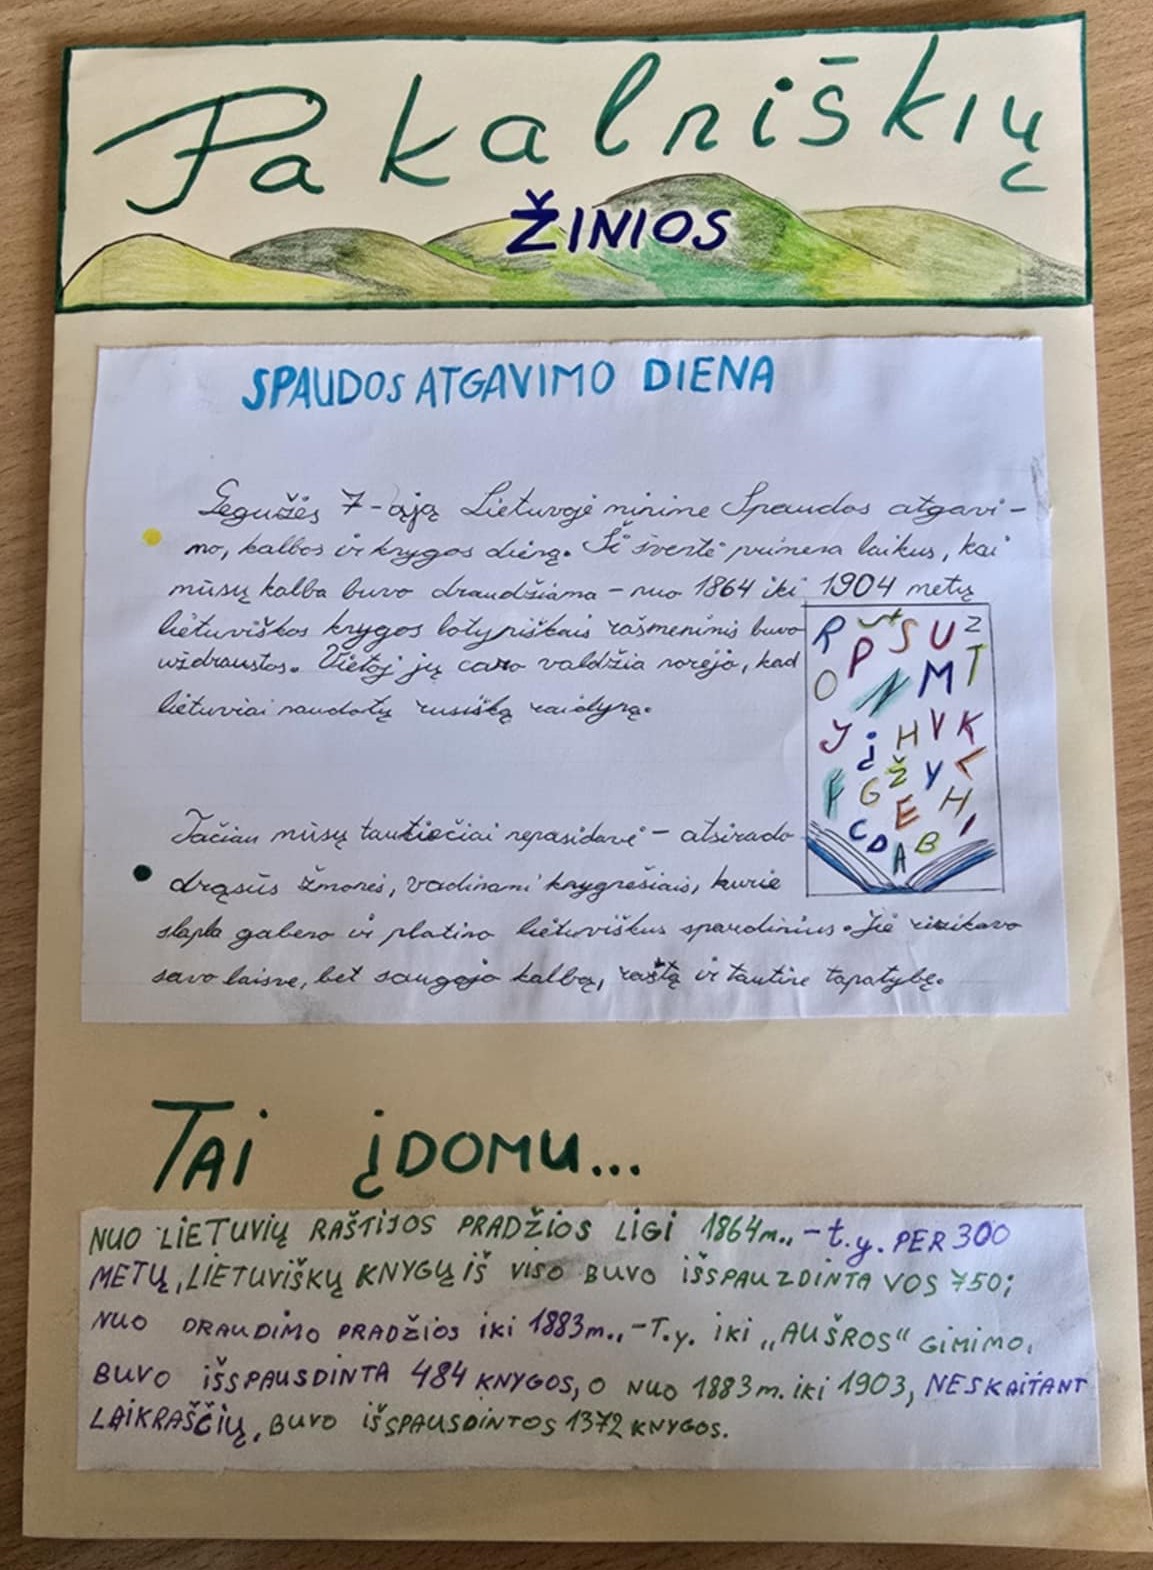 Pakalniškių
ŽINIOS
SPAUDOS ATGAVIMO DIENA
Gegužės 7-ąją Lietuvoje minime Spaudos atgavi-
mo, kalbos ir knygos dieną. Ši šventė primena laikus, kai
mūsų kalba buvo draudžiama - nuo 1864 iki 1904 metų
lietuviškos knygos lotyniškais rašmenimis buvo
uždraustos. Vietoj jų caro valdžia norėjo, kad
lietuviai naudotų rusišką raidyną.
R P Š U Z
O N M T
J į H V K
F G Ž Y L
E H I
C D A B
Tačiau mūsų tautiečiai nepasidavė - atsirado
drąsūs žmonės, vadinami knygnešiais, kurie
slapta gabeno ir platino lietuviškus spaudinius. Jie rizikavo
savo laisve, bet saugojo kalbą, raštą ir tautinę tapatybę.
TAI ĮDOMU...
NUO LIETUVIŲ RAŠTIJOS PRADŽIOS LIGI 1864m., - t.y. PER 300
METŲ, LIETUVIŠKŲ KNYGŲ IŠ VISO BUVO IŠSPAUZDINTA VOS 750;
NUO DRAUDIMO PRADŽIOS IKI 1883m., - T.y. IKI „AUŠROS" GIMIMO,
BUVO IŠSPAUSDINTA 484 KNYGOS, O NUO 1883m. iki 1903, NESKAITANT
LAIKRAŠČIŲ, BUVO IŠSPAUSDINTOS 1372 KNYGOS.